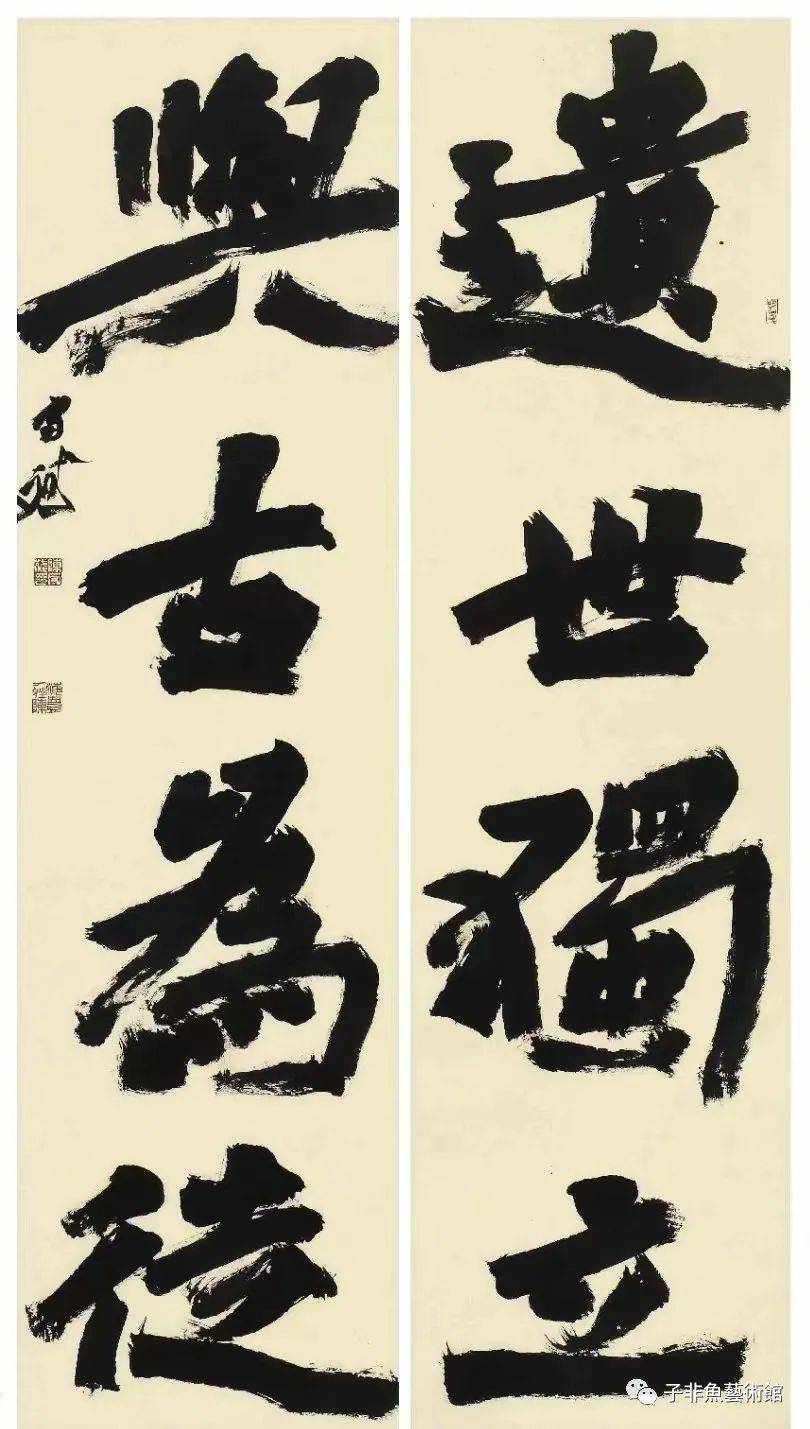 遺世獨立
與古為徒
子非魚藝術館